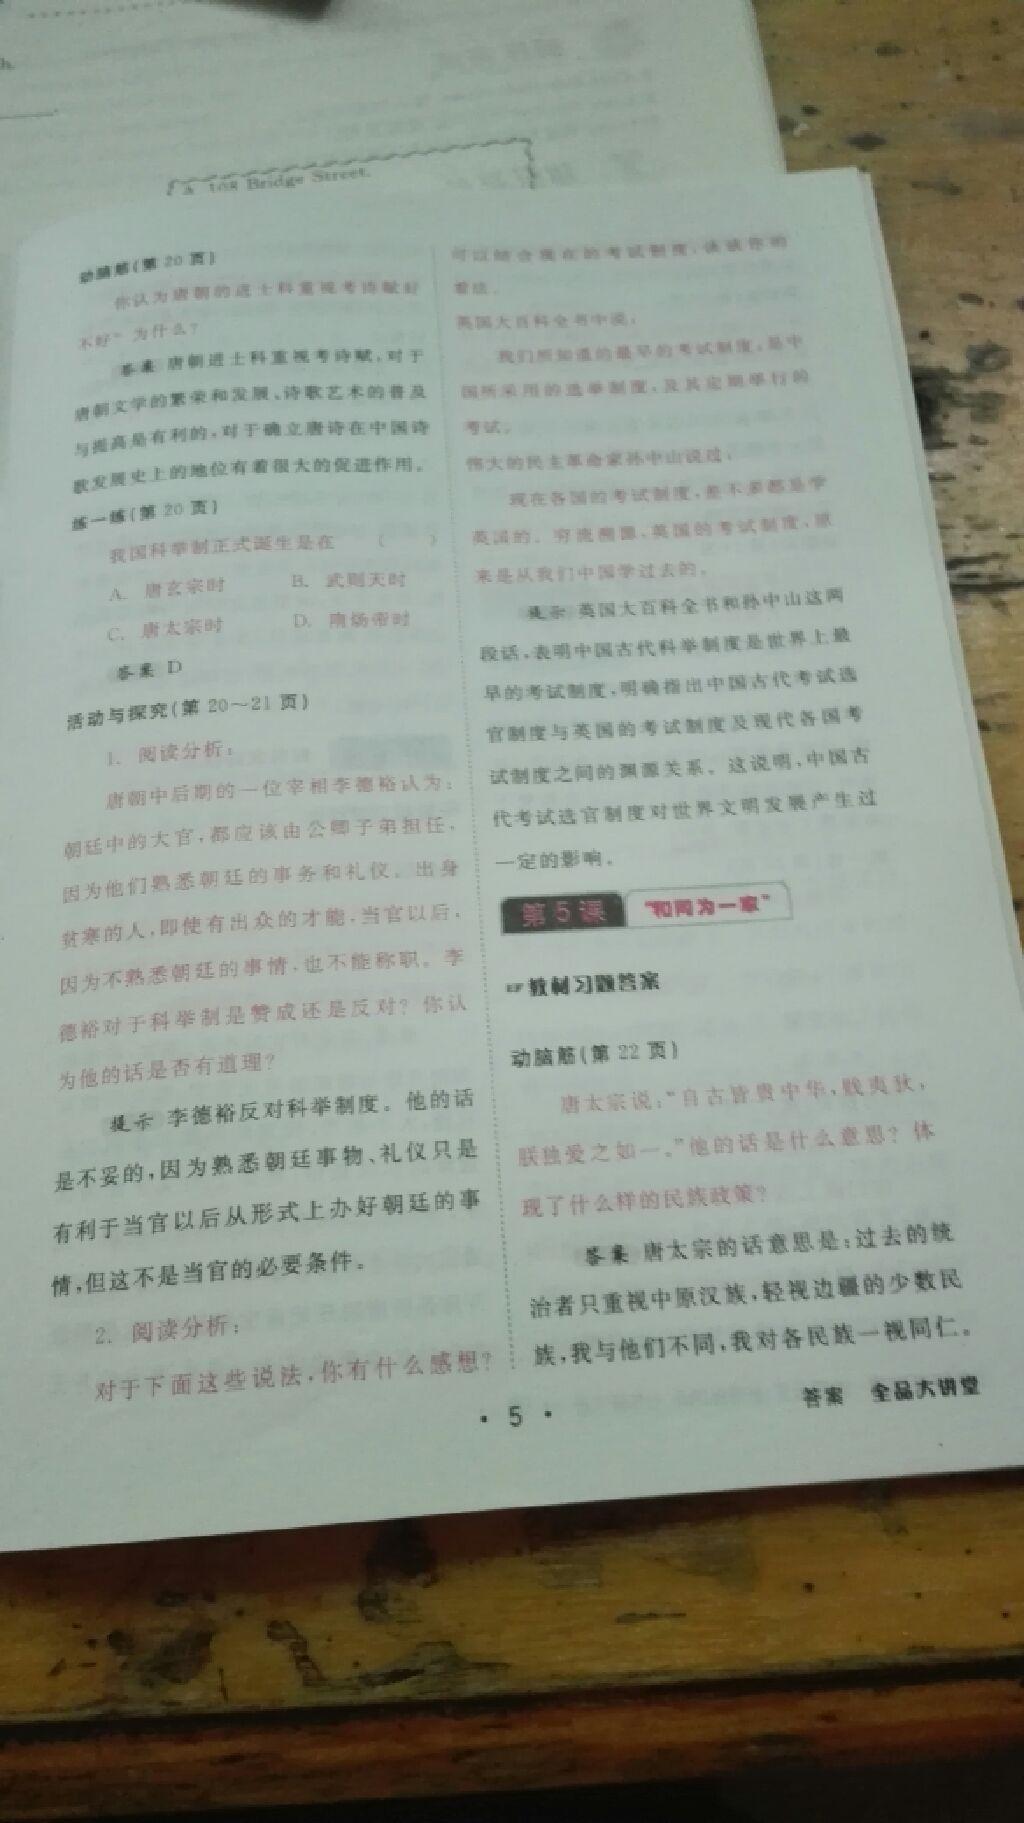 h.
A 108 Bridge Street.
动脑筋(第 20 页)
你认为唐朝的进士科重视考诗赋好
不好？为什么？
答案 唐朝进士科重视考诗赋,对于
唐朝文学的繁荣和发展、诗歌艺术的普及
与提高是有利的,对于确立唐诗在中国诗
歌发展史上的地位有着很大的促进作用。
练一练(第 20 页)
我国科举制正式诞生是在 ( )
A. 唐玄宗时 B. 武则天时
C. 唐太宗时 D. 隋炀帝时
答案 D
活动与探究(第 20～21 页)
1. 阅读分析:
唐朝中后期的一位宰相李德裕认为:
朝廷中的大官,都应该由公卿子弟担任,
因为他们熟悉朝廷的事务和礼仪。出身
贫寒的人,即使有出众的才能,当官以后,
因为不熟悉朝廷的事情,也不能称职。李
德裕对于科举制是赞成还是反对？你认
为他的话是否有道理？
提示 李德裕反对科举制度。他的话
是不妥的,因为熟悉朝廷事物、礼仪只是
有利于当官以后从形式上办好朝廷的事
情,但这不是当官的必要条件。
2. 阅读分析:
对于下面这些说法,你有什么感想？
可以结合现在的考试制度,谈谈你的
看法。
英国大百科全书中说:
我们所知道的最早的考试制度,是中
国所采用的选举制度,及其定期举行的
考试。
伟大的民主革命家孙中山说过:
现在各国的考试制度,差不多都是学
英国的。穷流溯源,英国的考试制度,原
来是从我们中国学过去的。
提示 英国大百科全书和孙中山这两
段话,表明中国古代科举制度是世界上最
早的考试制度,明确指出中国古代考试选
官制度与英国的考试制度及现代各国考
试制度之间的渊源关系。这说明,中国古
代考试选官制度对世界文明发展产生过
一定的影响。
第 5 课 “和同为一家”
☞教材习题答案
动脑筋(第 22 页)
唐太宗说:“自古皆贵中华,贱夷狄,
朕独爱之如一。”他的话是什么意思？体
现了什么样的民族政策？
答案 唐太宗的话意思是:过去的统
治者只重视中原汉族,轻视边疆的少数民
族,我与他们不同,我对各民族一视同仁。
· 5 ·
答案 全品大讲堂